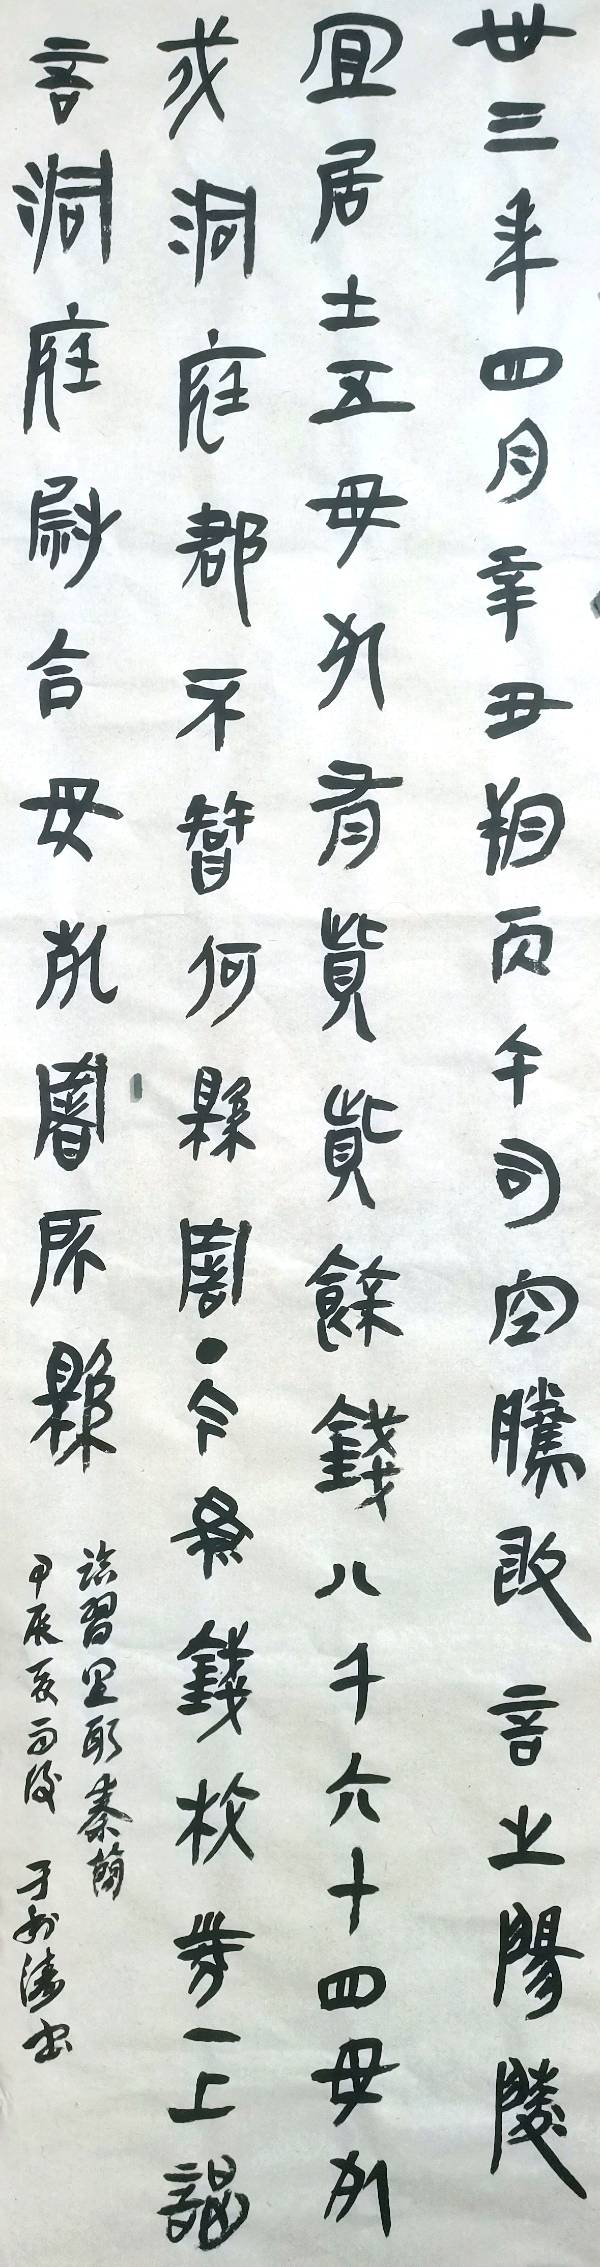 卅三年四月辛丑朔丙午司空騰敢言之陽陵
宜居士五毋死有貲貲餘錢八千六十四毋死
戍洞庭郡不智何縣署●今為錢校券一上謁
言洞庭尉令毋死署所縣
臨習里耶秦簡
甲辰夏雨後 于利濤書